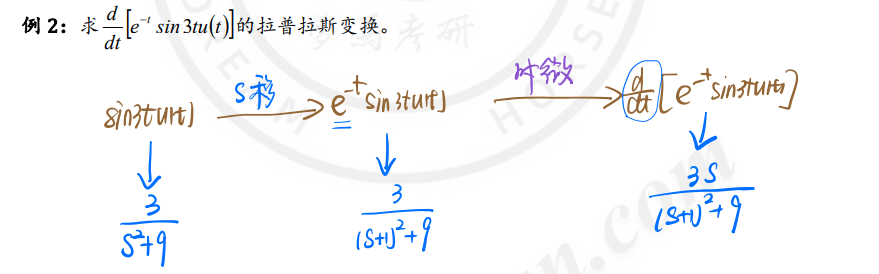 例 2：求 d/dt [e^{-t} sin 3tu(t)] 的拉普拉斯变换。
sin3tu(t) S移 e^{-t}sin3tu(t) 时微 d/dt [e^{-t}sin3tu(t)]
3/(S²+9) 3/((S+1)²+9) 3S/((S+1)²+9)